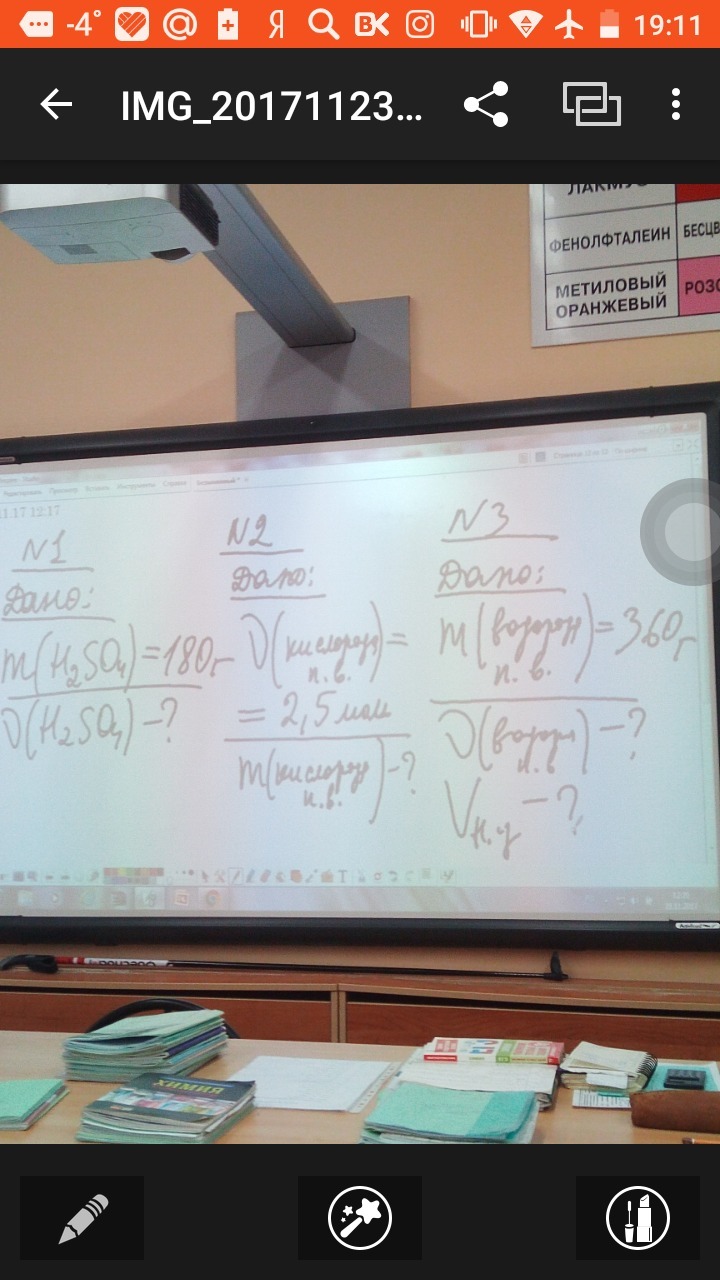 -4°
Я
19:11
IMG_20171123...
ЛАКМУС
ФЕНОЛФТАЛЕИН БЕСЦВ
МЕТИЛОВЫЙ
ОРАНЖЕВЫЙ РОЗО
11.17 12:17
N1
Дано:
m(H₂SO₄)=180г
ν(H₂SO₄)-?
N2
Дано:
ν(кислород
п.в.)=
= 2,5 мол
m(кислород
п.в.)-?
N3
Дано:
m(водород
п.в.)=360г
ν(водор
п.в)-?
Vн.у -?
ХИМИЯ